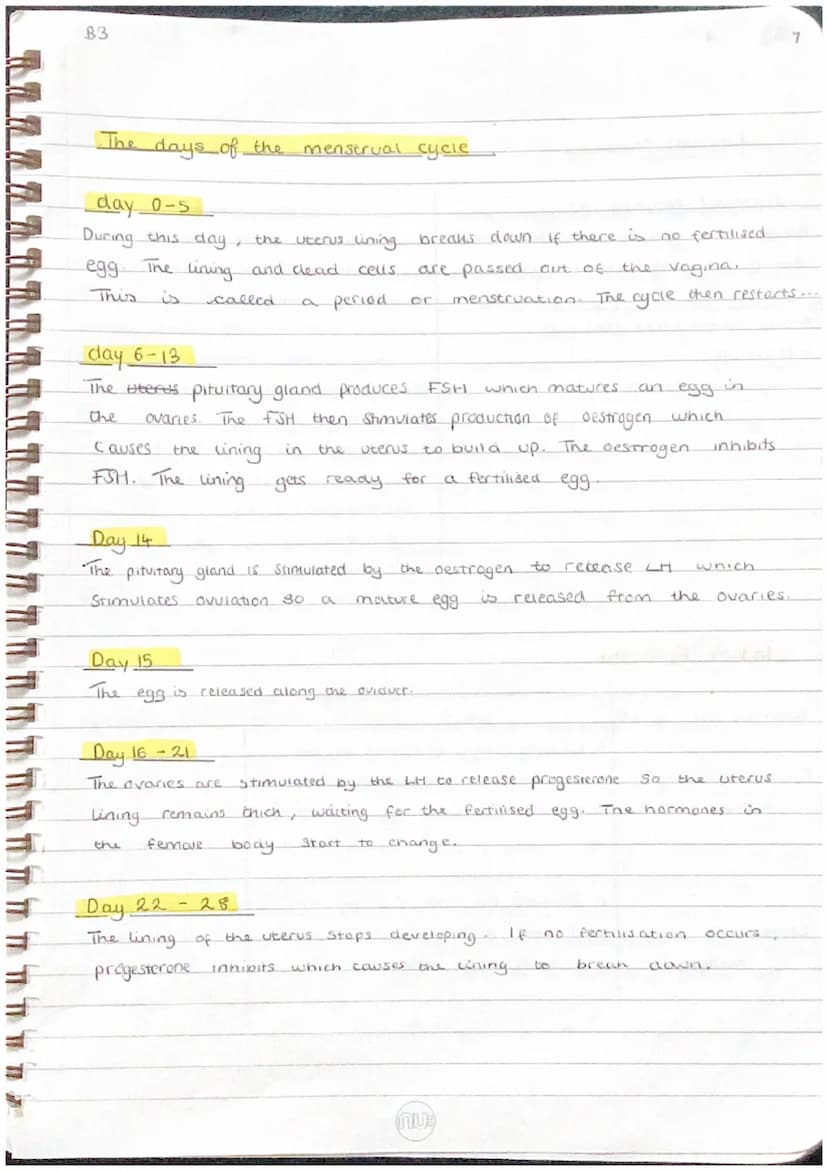 B3
7
The days of the menstrual cycle
day 0-5
During this day, the uterus lining breaks down if there is no fertilised
egg. The lining and dead cells are passed out of the vagina.
This is called a period or menstruation. The cycle then restarts...
day 6-13
The uterus pituitary gland produces FSH which matures an egg in
the ovaries. The FSH then stimulates production of oestrogen which
causes the lining in the uterus to build up. The oestrogen inhibits
FSH. The lining gets ready for a fertilised egg.
Day 14
The pituitary gland is stimulated by the oestrogen to release LH which
stimulates ovulation so a mature egg is released from the ovaries.
Day 15
The egg is released along the oviduct.
Day 16 - 21
The ovaries are stimulated by the LH to release progesterone so the uterus
lining remains thick, waiting for the fertilised egg. The hormones in
the female body start to change.
Day 22 - 28
The lining of the uterus stops developing. If no fertilisation occurs,
progesterone inhibits which causes the lining to break down.
nu: